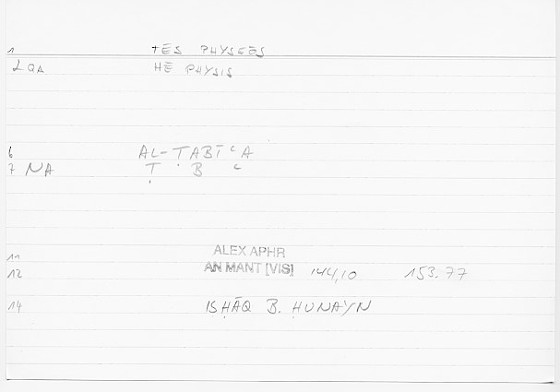 1 TES PHYSEŌS
2 QA HE PHYSIS
6 AL-ṬABĪʿA
7 NA Ṭ B ʿ
11 ALEX APHR
12 AN MANT [VIS] 144,10 153.77
14 ISḤĀQ B. ḤUNAYN